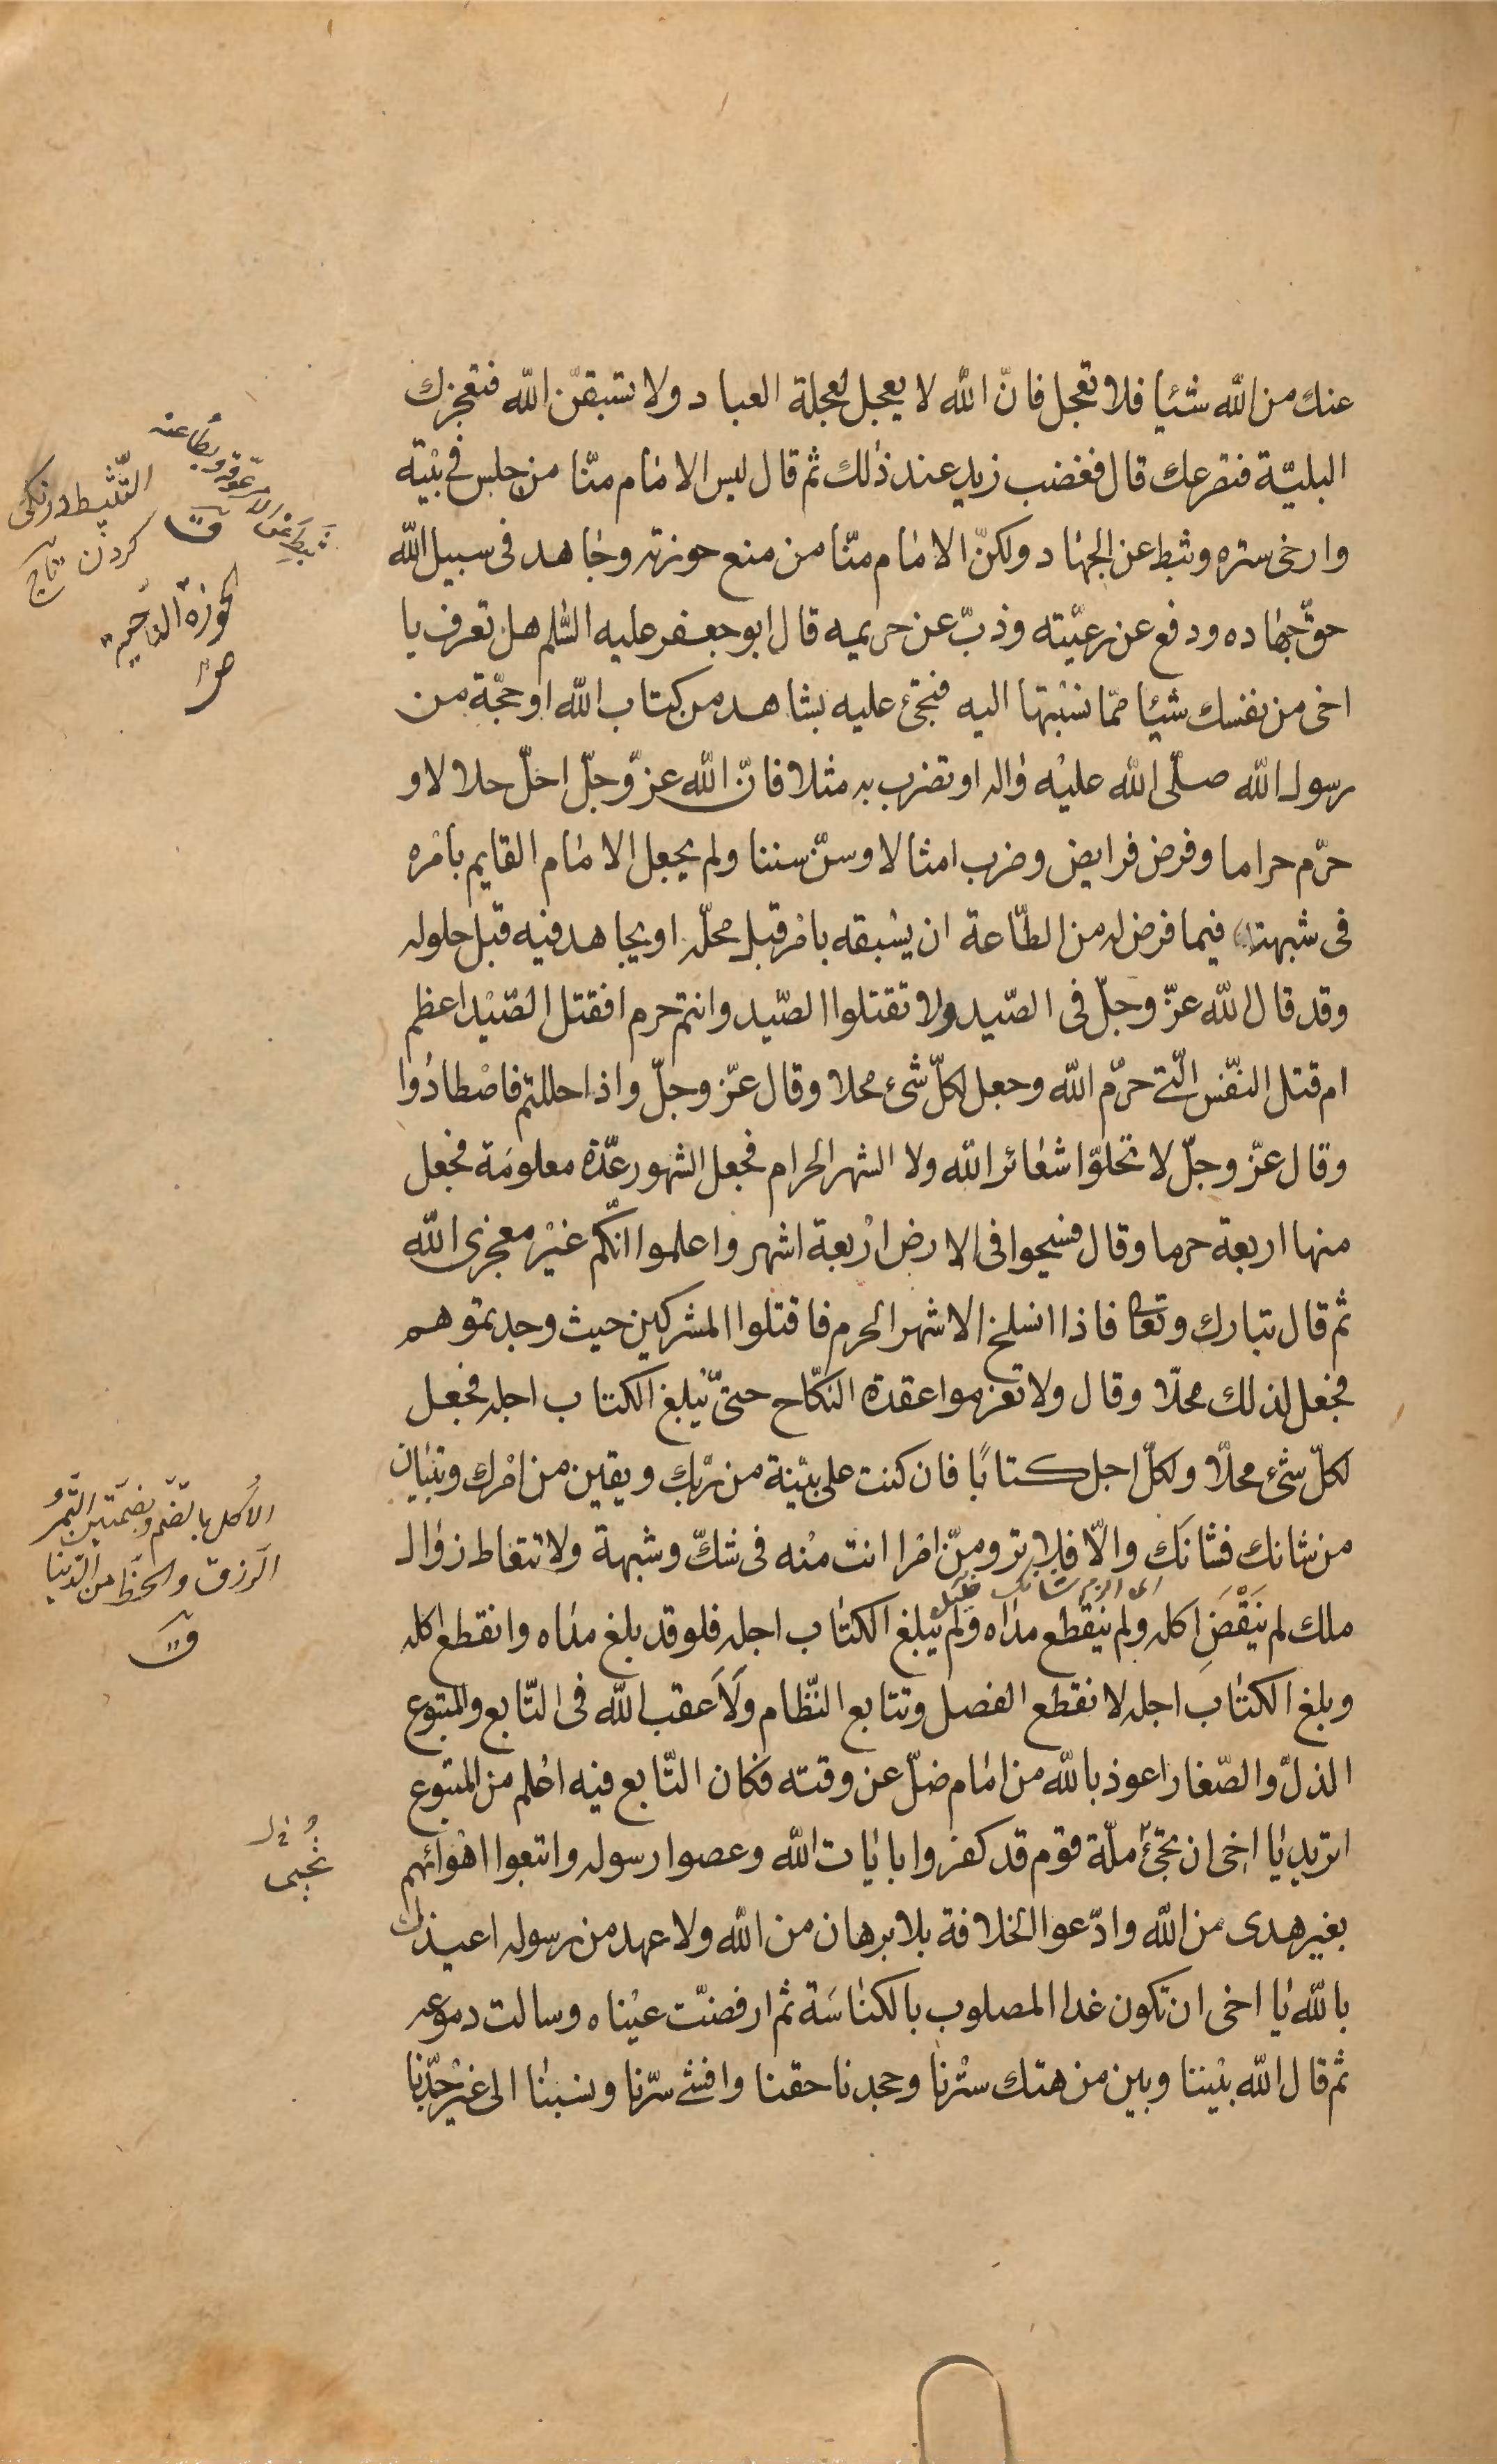 عنك من الله شيئا فلا تعجل فانّ الله لا يعجل لعجلة العباد ولا تسبقنّ الله فتعجزك
البليّة فتصرعك قال فغضب زيد عند ذلك ثم قال ليس الامام منّا من جلس فى بيته
وارخى ستره وثبط عن الجهاد ولكنّ الامام منّا من منع حوزته وجاهد فى سبيل الله
حقّ جهاده ودفع عن رعيّته وذبّ عن حريمه قال ابو جعفر عليه السّلم هل تعرف يا
اخى من نفسك شيئا ممّا نسبتها اليه فتجئ عليه بشاهد من كتاب الله او حجّة من
رسول الله صلّى الله عليه واله او تضرب به مثلا فانّ الله عزّ وجلّ احلّ حلالا و
حرّم حراما وفرض فرايض وضرب امثالا وسنّ سننا ولم يجعل الامام القايم بامره
فى شبهة فيما فرض له من الطّاعة ان يسبقه بامر قبل محلّه او يجاهد فيه قبل حلوله
وقد قال الله عزّ وجلّ فى الصّيد ولا تقتلوا الصّيد وانتم حرم افقتل الصّيد اعظم
ام قتل النفّس الّتى حرّم الله وجعل لكلّ شئ محلا وقال عزّ وجلّ واذا حللتم فاصطادوا
وقال عزّ وجلّ لا تحلوّا شعائر الله ولا الشهر الحرام فجعل الشهور عدّة معلومة فجعل
منها اربعة حرما وقال فسيحوا فى الارض اربعة اشهر واعلموا انّكم غير معجزى الله
ثم قال تبارك وتعا فاذا انسلخ الاشهر الحرم فاقتلوا المشركين حيث وجدتموهم
فجعل لذلك محلّا وقال ولا تعزموا عقدة النكّاح حتىّ يبلغ الكتاب اجله فجعل
لكلّ شئ محلّا ولكلّ اجل كتابًا فان كنت على بيّنة من ربّك ويقين من امرك وتبيان
من شانك فشانك والّا فلا ترومنّ امرا انت منه فى شكّ وشبهة ولا تتعاط زوال
اى الزم شانك
ملك لم يَنْقَضِ اكله ولم ينقطع مداه ولم يبلغ الكتاب اجله فلو قد بلغ مداه وانقطع اكله
وبلغ الكتاب اجله لانقطع الفصل وتتابع النّظام ولَاَعقب الله فى التّابع والمتبوع
الذلّ والصّغار اعوذ بالله من امام ضلّ عن وقته فكان التّابع فيه اعلم من المتبوع
اتريد يا اخى ان تجئ ملّة قوم قد كفروا بايات الله وعصوا رسوله واتبعوا اهوائهم
بغير هدى من الله وادّعوا الخلافة بلا برهان من الله ولا عهد من رسوله اعيذك
بالله يا اخى ان تكون غدا المصلوب بالكناسة ثم ارفضّت عيناه وسالت دموعه
ثم قال الله بيننا وبين من هتك سترنا وجحدنا حقنا وافشى سرّنا ونسبنا الى غير جدّنا
ثبطه عن الامر عوّقه وبطأ عنه
ق
التّثبيط درنگى
كردن تاج
الحوزة النّاحية
ص
الاُكل بالضّم وبضمّتين التّمر
الرّزق والحظّ من الدّنيا
ق
تُحيى